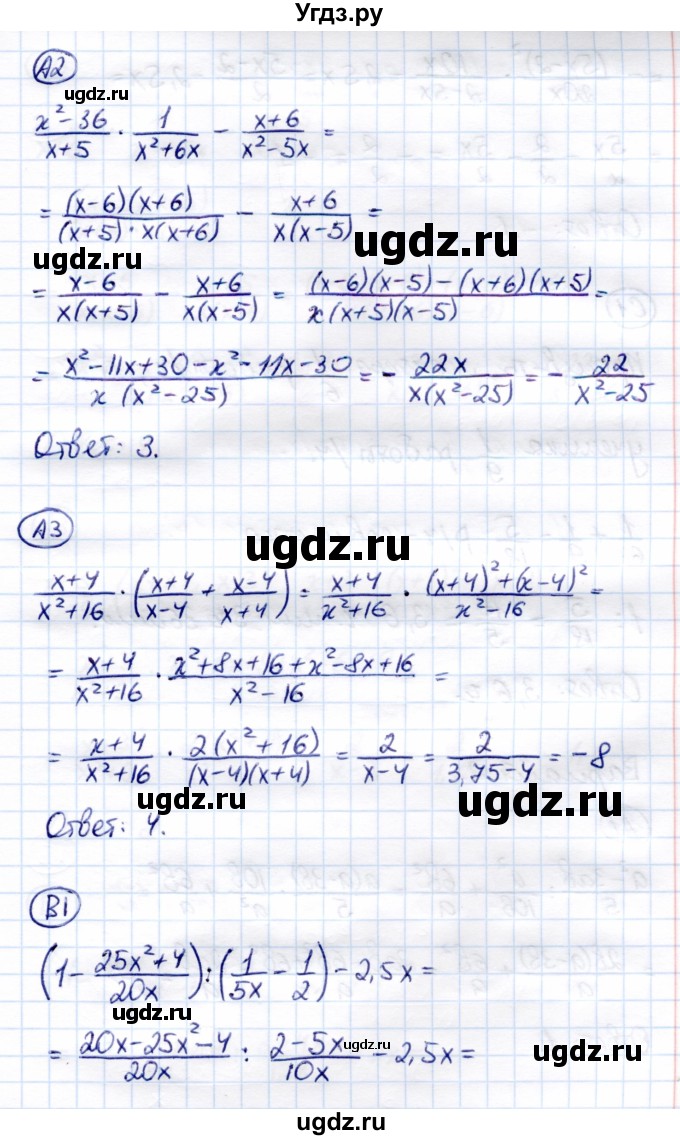 Угдз.ру
А2
(x²-36)/(x+5) · 1/(x²+6x) - (x+6)/(x²-5x) =
= (x-6)(x+6)/((x+5)·x(x+6)) - (x+6)/(x(x-5)) =
ugdz.ru
ugdz.ru
= (x-6)/(x(x+5)) - (x+6)/(x(x-5)) = ((x-6)(x-5)-(x+6)(x+5))/(x(x+5)(x-5)) =
= (x²-11x+30-x²-11x-30)/(x(x²-25)) = - 22x/(x(x²-25)) = - 22/(x²-25)
Ответ: 3.
А3
ugdz.ru
(x+4)/(x²+16) · ((x+4)/(x-4) + (x-4)/(x+4)) = (x+4)/(x²+16) · ((x+4)²+(x-4)²)/(x²-16) =
= (x+4)/(x²+16) · (x²+8x+16+x²-8x+16)/(x²-16) =
= (x+4)/(x²+16) · 2(x²+16)/((x-4)(x+4)) = 2/(x-4) = 2/(3,75-4) = -8
ugdz.ru
ugdz.ru
Ответ: 4.
В1
(1 - (25x²+4)/(20x)) : (1/(5x) - 1/2) - 2,5x =
ugdz.ru
= (20x-25x²-4)/(20x) : (2-5x)/(10x) - 2,5x =
ugdz.ru
ugdz.ru
ugdz.ru